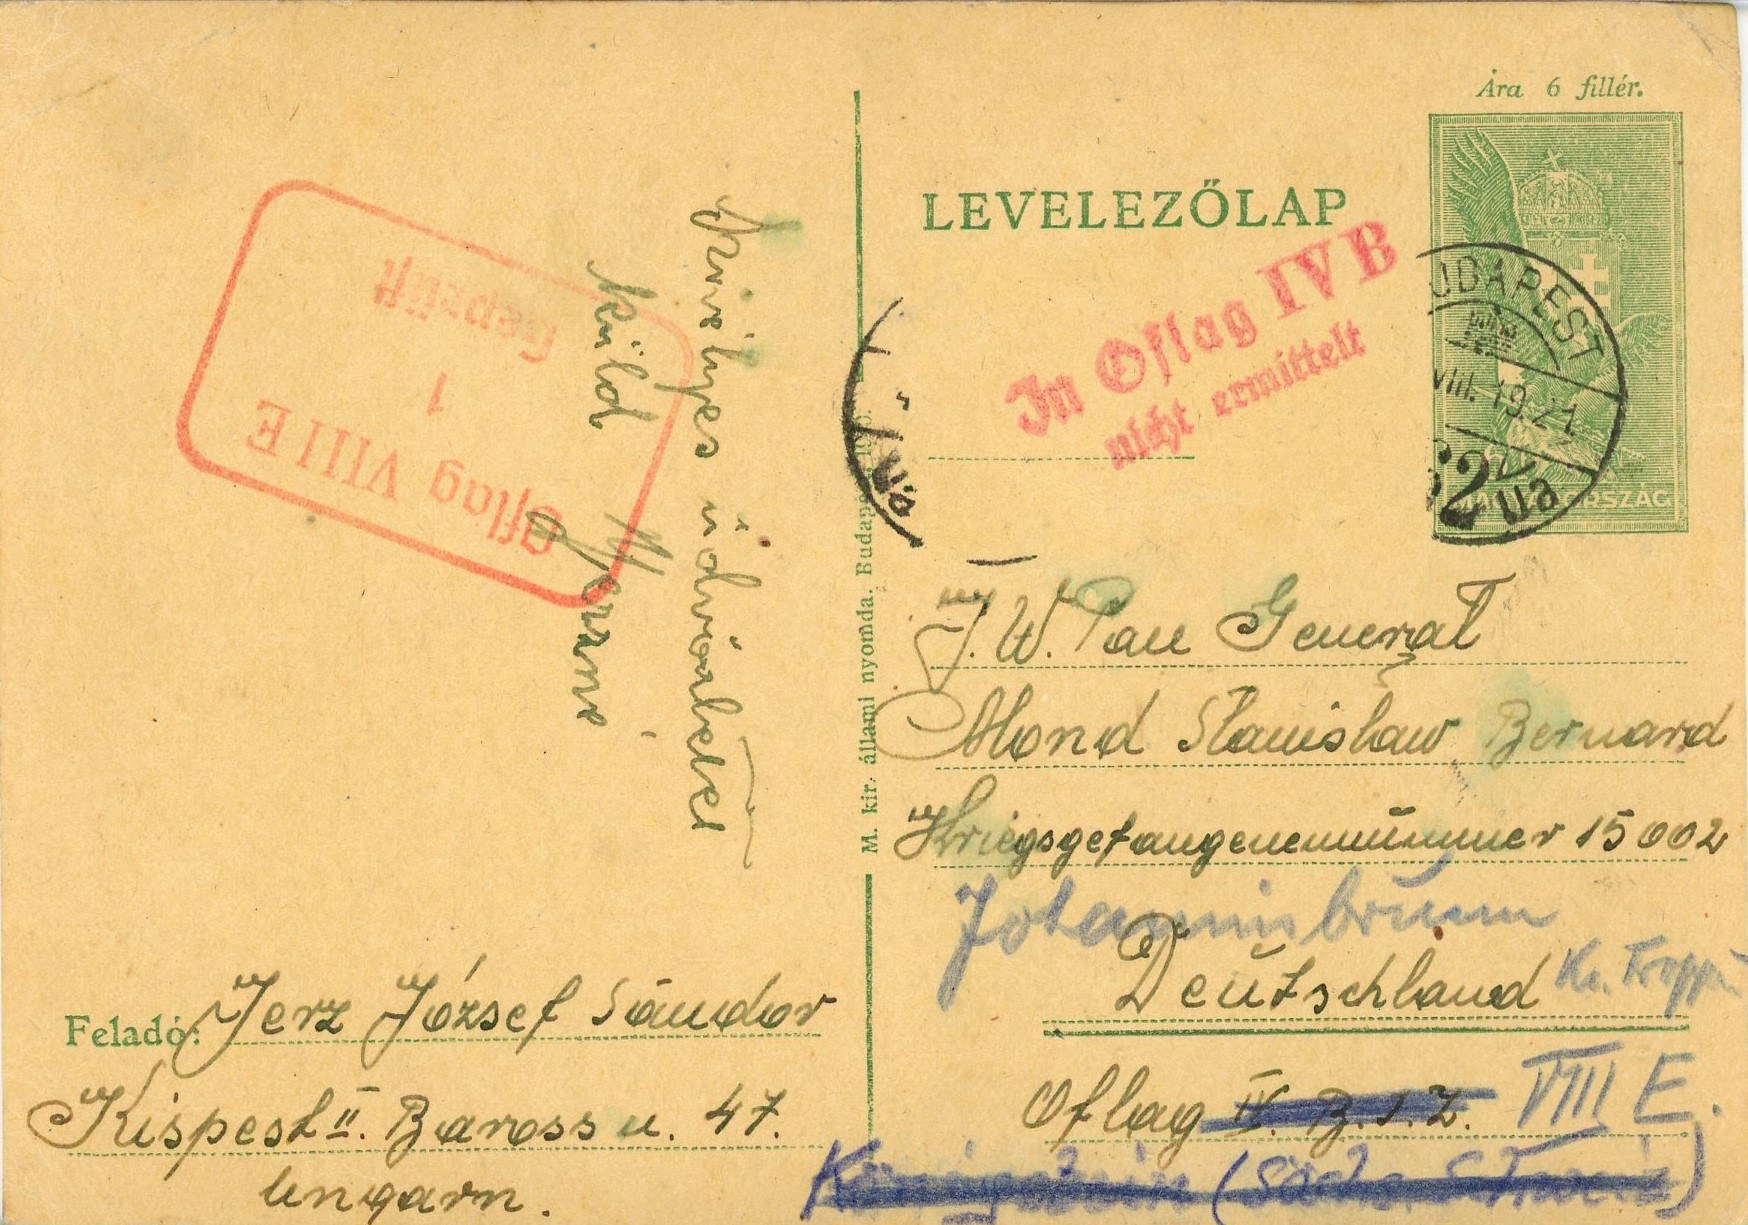 Ára 6 fillér.
LEVELEZŐLAP
MAGYARORSZÁG
BUDAPEST
VIII. 19. 21
62
In Oflag IV B
nicht ermittelt
Oflag VIII E
1
Geprüft
üdvözlettel
küld Jerzné
M. kir. állami nyomda. Budapest
J. W. Pan General
Mond Stanisław Bernard
Kriegsgefangenennummer 15002
Johannisbrunn
Deutschland Kr. Troppau
Oflag IV. B. VIII E.
Königstein (Sächs. Schweiz)
Feladó: Jerz József Sándor
Kispest II. Baross u. 47.
Ungarn.